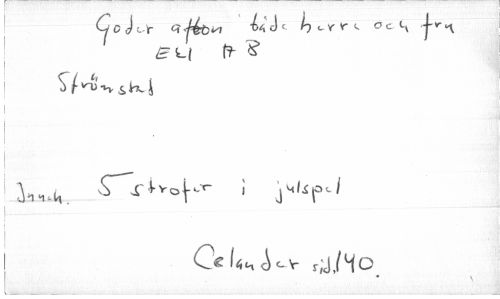 Goder afton både herre och fru
EEI 17 B
Strömstad
Inneh. 5 strofer i julspel
Celander sid. 140.